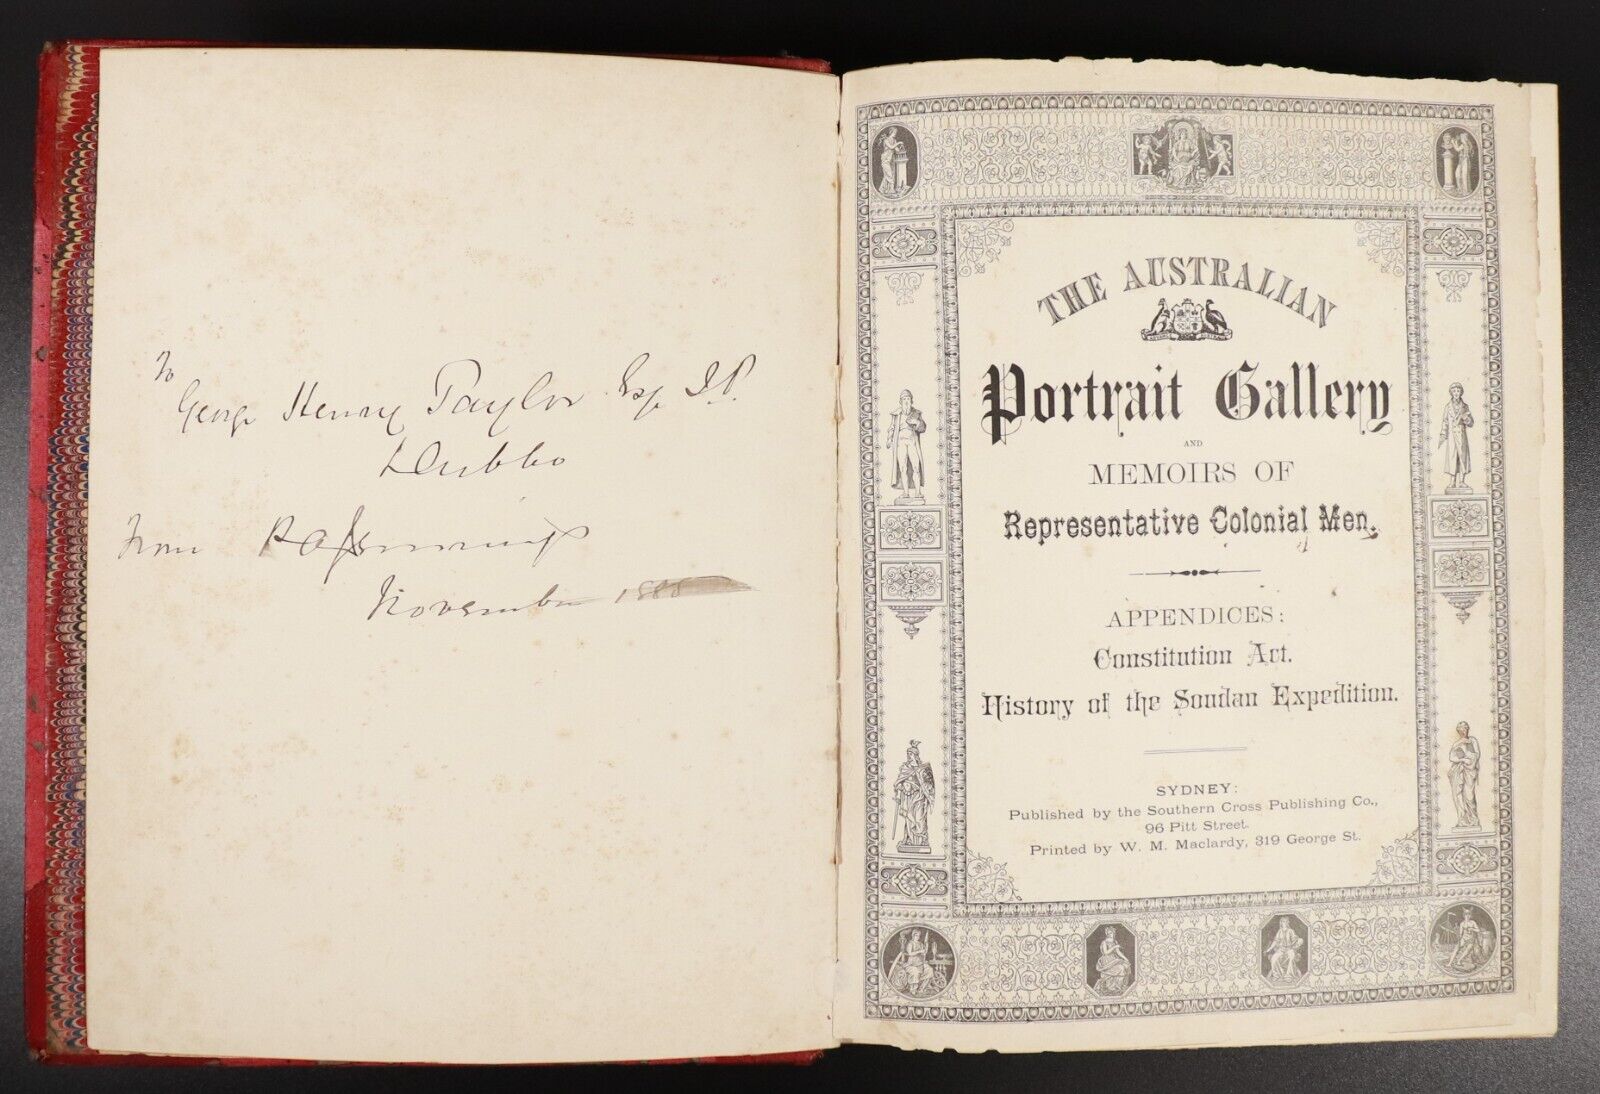 To
George Henry Taylor Esq. J.P.
Dubbo
From
November 1888
THE AUSTRALIAN
Portrait Gallery
AND
MEMOIRS OF
Representative Colonial Men.
APPENDICES:
Constitution Act.
History of the Soudan Expedition.
SYDNEY:
Published by the Southern Cross Publishing Co.,
96 Pitt Street.
Printed by W. M. Maclardy, 319 George St.